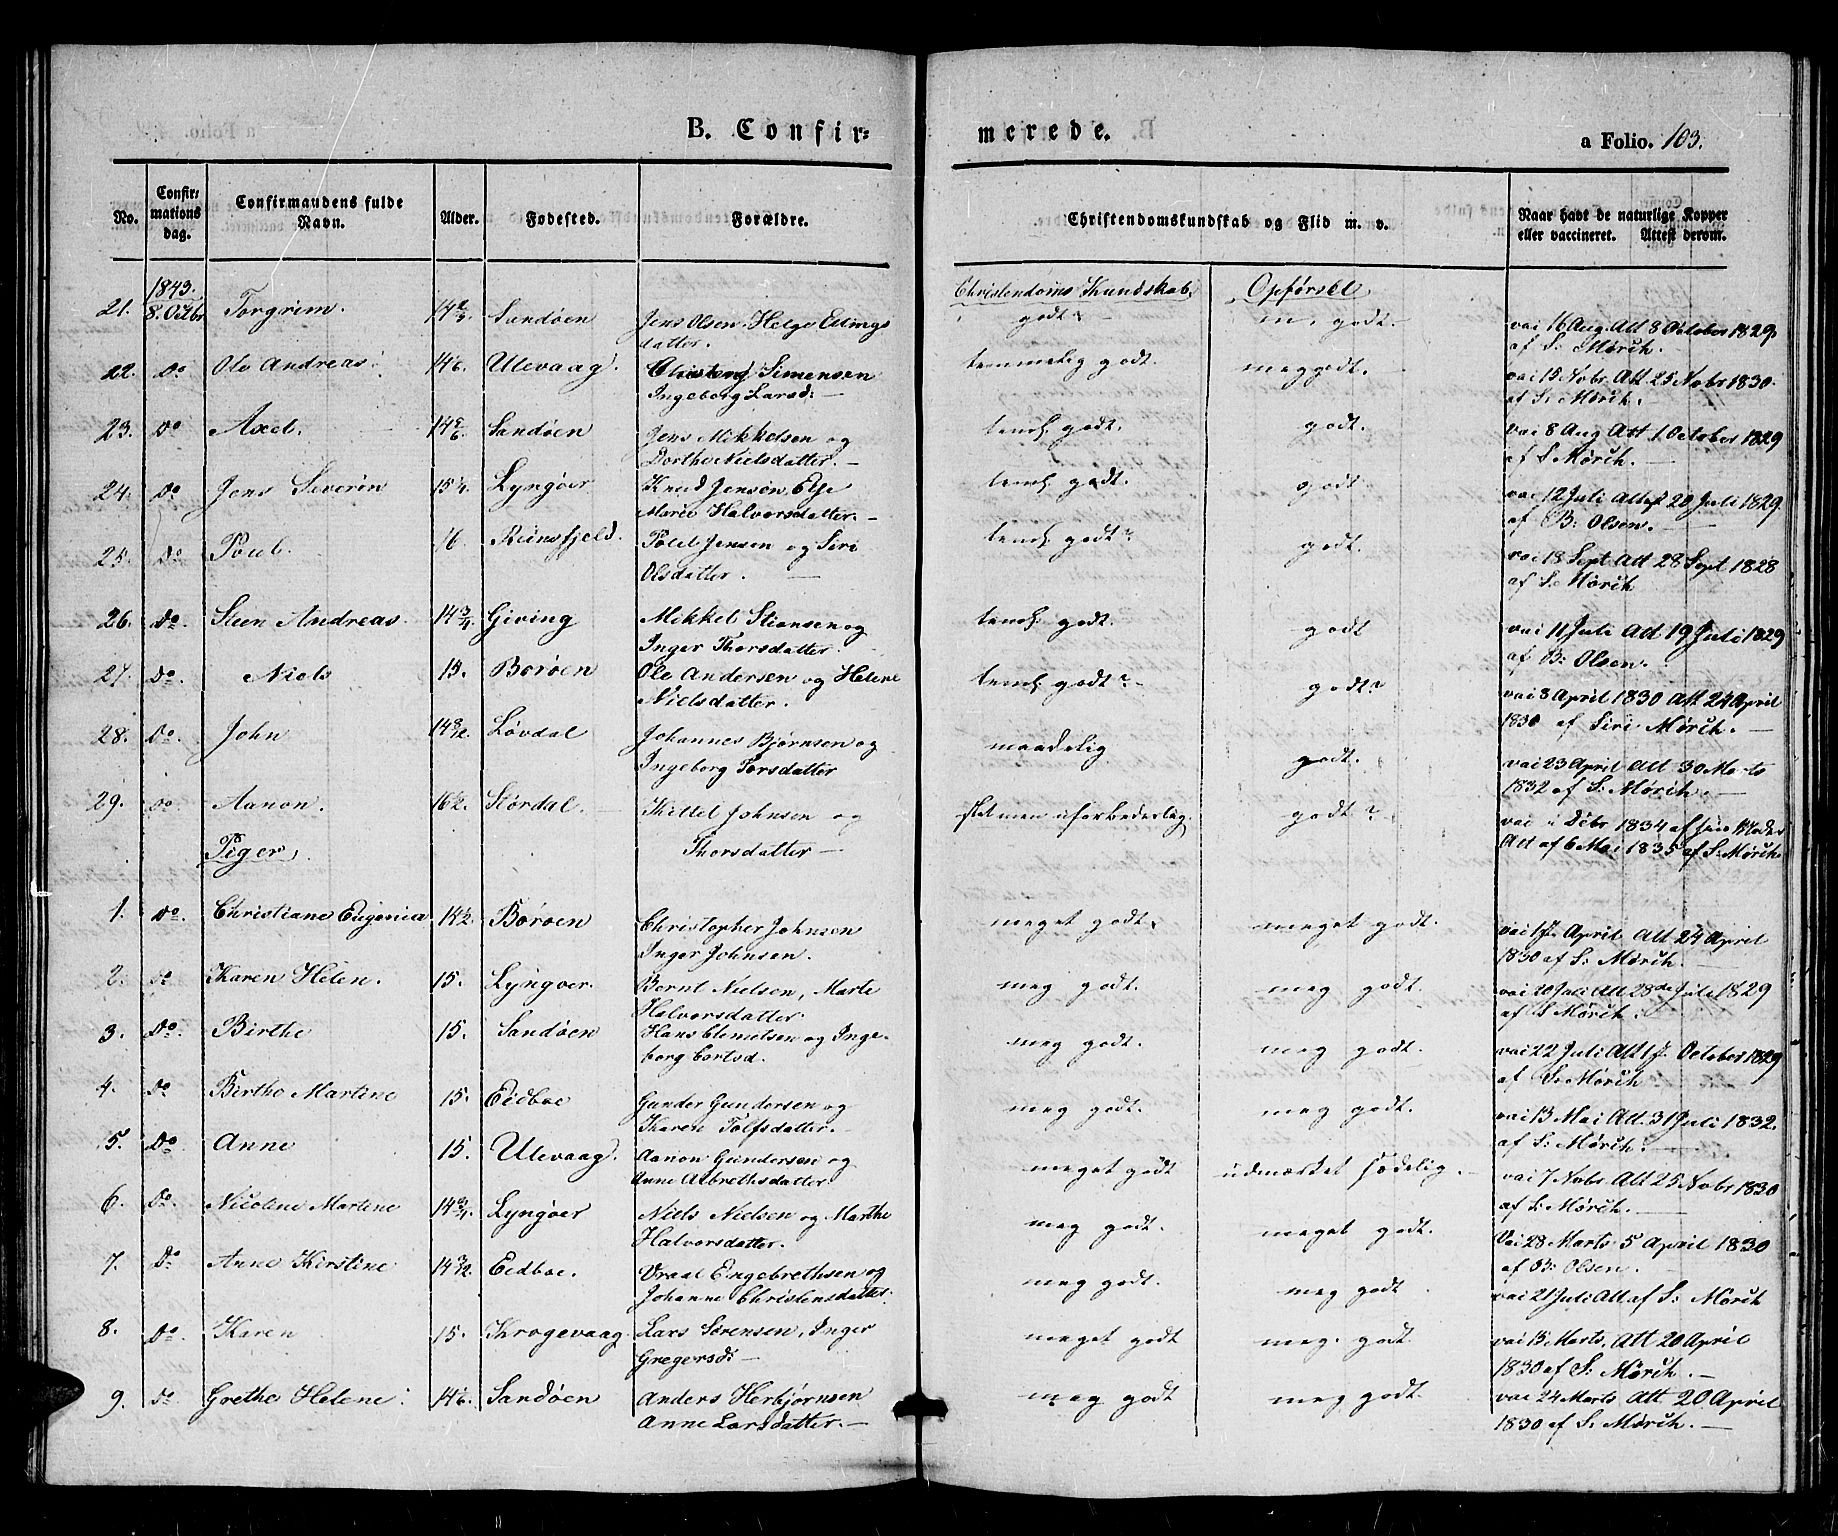 B. Confir=
merede.
a Folio. 103.
No.
Confir=
mations
dag.
Confirmandens fulde
Navn.
Alder.
Fødested.
Forældre.
Christendomskundskab og Flid m. v.
Naar havt de naturlige Kopper
eller vaccineret. Attest derom.
1843.
Christendoms Kundskab. Opførsel
21. 8. Octbr Torgrim. Sandøen Jens Olsen, Helge Ellings
datter.
godt m. godt. vai 16 Aug. Att 8 October 1829
af S: Mørch.
22. Do Ole Andreas. 14 1/6. Ulevaag. Simensen
Ingeborg Larsd:
temmelig godt meg godt. vai 15 Nobr. Att 25 Nobr 1830.
af S: Mørch.
23. Do Axel. Sandøen Jens Mikkelsen og
Dorthe Nielsdatter.
teml. godt. godt. vai 8 Aug Att 1 October 1829
af S Mørch.
24. Do Jens Severin 15 1/4. Lyngøer Knud Jensen, Elje
Marie Halvorsdatter.
teml. godt. godt vai 12 Juli Attest 20 Juli 1829
af B: Olsen.
25. Do Poul. 16. Poul Jensen og Siri
Olsdatter.
teml. godt? godt. vai 18 Sept Att 28 Sept 1828
af S: Mørch
26. Do. Steen Andreas. 14 3/4 Giving Mikkel Stiansen og
Inger Thorsdatter.
teml. godt. godt vai 11 Juli Att 19 Juli 1829
af B: Olsen.
27. Do. Niels 15. Borøen Ole Andersen og Helene
Nielsdatter.
teml. godt? godt? vai 8 April 1830 Att 24 April
1830 af Siri Mørch.
28. Do. John 14 8/12. Løvdal Johannes Bjørnsen og
Ingeborg Torsdatter
maadelig godt. vai 23 April Att 30 Marts
1832 af S: Mørch.
29. Do Aanon. 16 1/2. Stordal. Kittel Johnsen og
Thorsdatter
slet men uforbederlig. godt? vai i Debr 1834 af sin Moder
Att af 6 Mai 1835 af S: Mørch
Piger.
1. Do. Christiane Eugenia 14 1/2. Borøen Christopher Johnsen
Inger Johnsen.
meget godt. meget godt. vai 1ste April Att 24 April
1830 af S: Mørch.
2. Do Karen Helen. 15. Lyngoer. Bernt Nielsen, Marte
Halvorsdatter
meg godt. meg godt. vai 20 Juli Att 28de Juli 1829
af S Mørch.
3. Do. Birthe 15. Sandøen Hans Clemetsen og Inge-
borg
meg godt. meg godt. vai 22 Juli Att October 1829
af S: Mørch
4. Do Birthe Martine 15. Eidboe Gunder Gundersen og
Karen Tolfsdatter.
meg godt. meg godt. vai 13 Mai Att. 31 Juli 1832.
af S: Mørch.
5. Do. Anne 15. Ulevaag. Aanon Gundersen og
Anne Albrethsdatter
meget godt udmærket sædelig. vai 7 Nobr Att 25 Nobr 1830
af S: Mørch.
6. Do. Nicoline Martine 14 3/4. Lyngøer Niels Nielsen og Marthe
Halvorsdatter.
meg godt. meget godt. Vai 28 Marts 5 April 1830
af B: Olsen.
7. Do Anne Kirstine Eedboe. Vraal Engebrethsen og
Johanne Christensdatter.
meg godt. meg godt vai 21 Juli Att af S: Mørch
8. Do. Karen 15. Krogevaag. Lars Sørensen, Inger
Gregersd:
meget godt meg. godt. vai 13 Marts. Att 20 April
1830 af S: Mørch.
9. Do Grethe Helene. 14 1/6. Sandøen Anders Herbjørnsen
Anne Larsdatter.
meg godt meg godt. vai 24 Marts Att 20 April
1830 af S: Mørch.